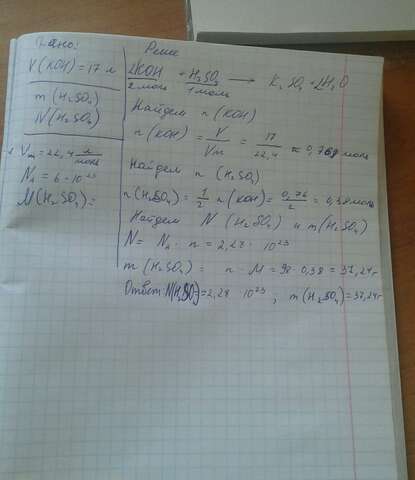 Дано:
V(KOH) = 17 л
m(H₂SO₄)
N(H₂SO₄)
Vm = 22,4 л/моль
Nₐ = 6 · 10²³
M(H₂SO₄) =
Реше
2KOH + H₂SO₄ → K₂SO₄ + 2H₂O
2 моль 1 моль
Найдем n (KOH)
n (KOH) = V/Vm = 17/22,4 ≈ 0,768 моль
Найдем n (H₂SO₄)
n(H₂SO₄) = 1/2 n(KOH) = 0,76/2 = 0,38 моль
Найдем N (H₂SO₄) и m(H₂SO₄)
N = Nₐ · n = 2,28 · 10²³
m (H₂SO₄) = n · M = 98 · 0,38 = 37,24 г
Ответ: N(H₂SO₄) = 2,28 · 10²³ ; m(H₂SO₄) = 37,24 г